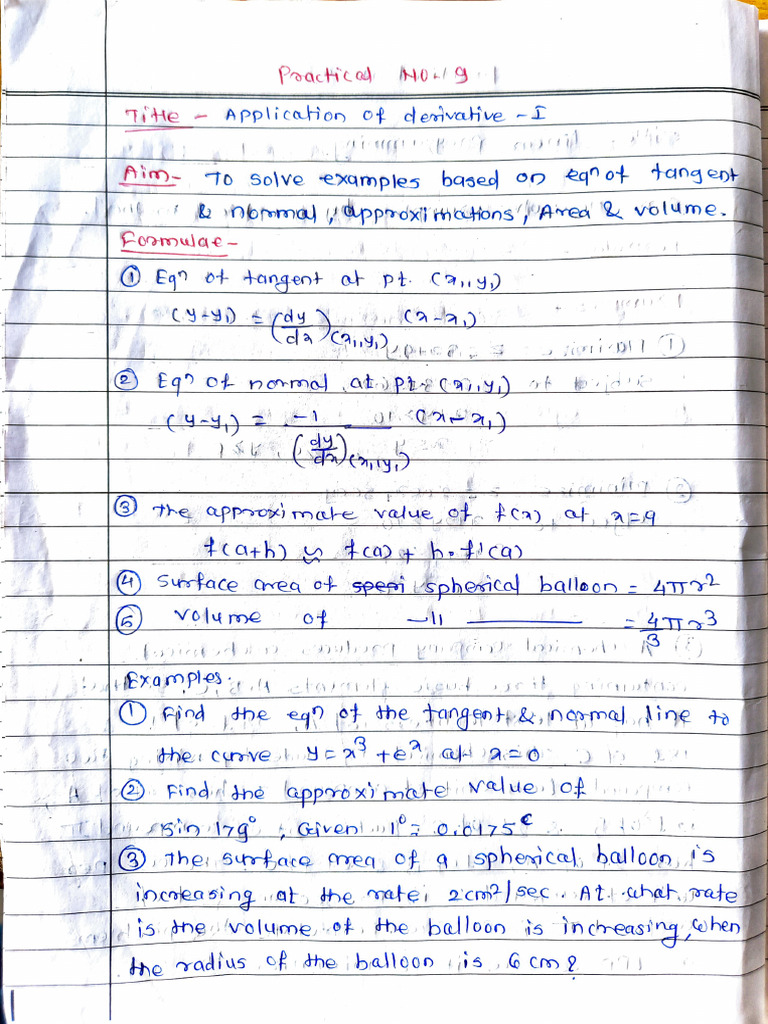 Practical No. 9
Title - Application of derivative - I
Aim- To solve examples based on eqn of tangent
& normal, approximations, Area & volume.
Formulae -
① Eqn of tangent at pt. (x₁,y₁)
(y-y₁) = (dy/dx)(x₁,y₁) (x-x₁)
② Eqn of normal at pt. (x₁,y₁)
(y-y₁) = -1/(dy/dx)(x₁,y₁) (x-x₁)
③ The approximate value of f(x) at x=a
f(a+h) ≈ f(a) + h·f'(a)
④ Surface area of spherical balloon = 4πr²
⑤ Volume of —11 ——— = 4/3 πr³
Examples.
① Find the eqn of the tangent & normal line to
the curve y = x³ + eˣ at x=0
② Find the approximate value of
sin 179°, Given 1° = 0.0175ᶜ
③ The surface area of a spherical balloon is
increasing at the rate 2cm²/sec. At what rate
is the volume of the balloon is increasing, when
the radius of the balloon is 6cm?